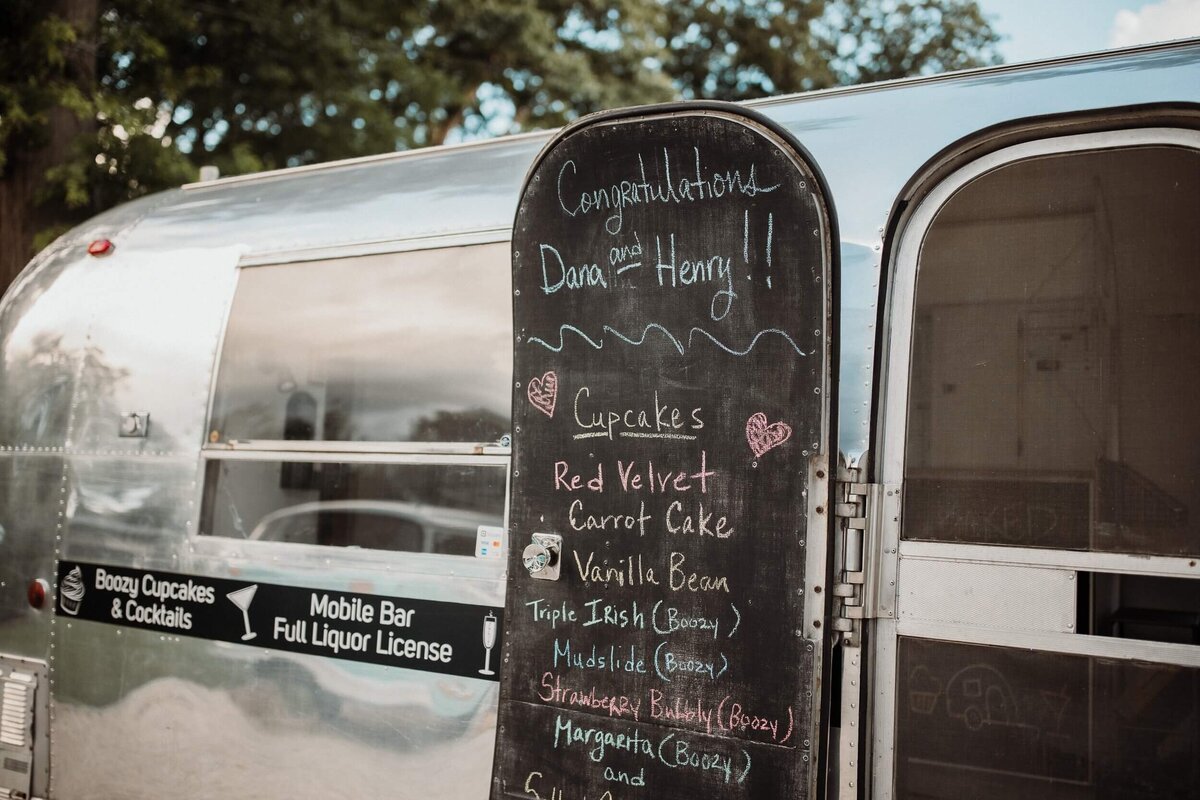 Congratulations
Dana and Henry!!
Cupcakes
Red Velvet
Carrot Cake
Vanilla Bean
Triple Irish (Boozy)
Mudslide (Boozy)
Strawberry Bubbly (Boozy)
Margarita (Boozy)
and
Boozy Cupcakes
& Cocktails
Mobile Bar
Full Liquor License